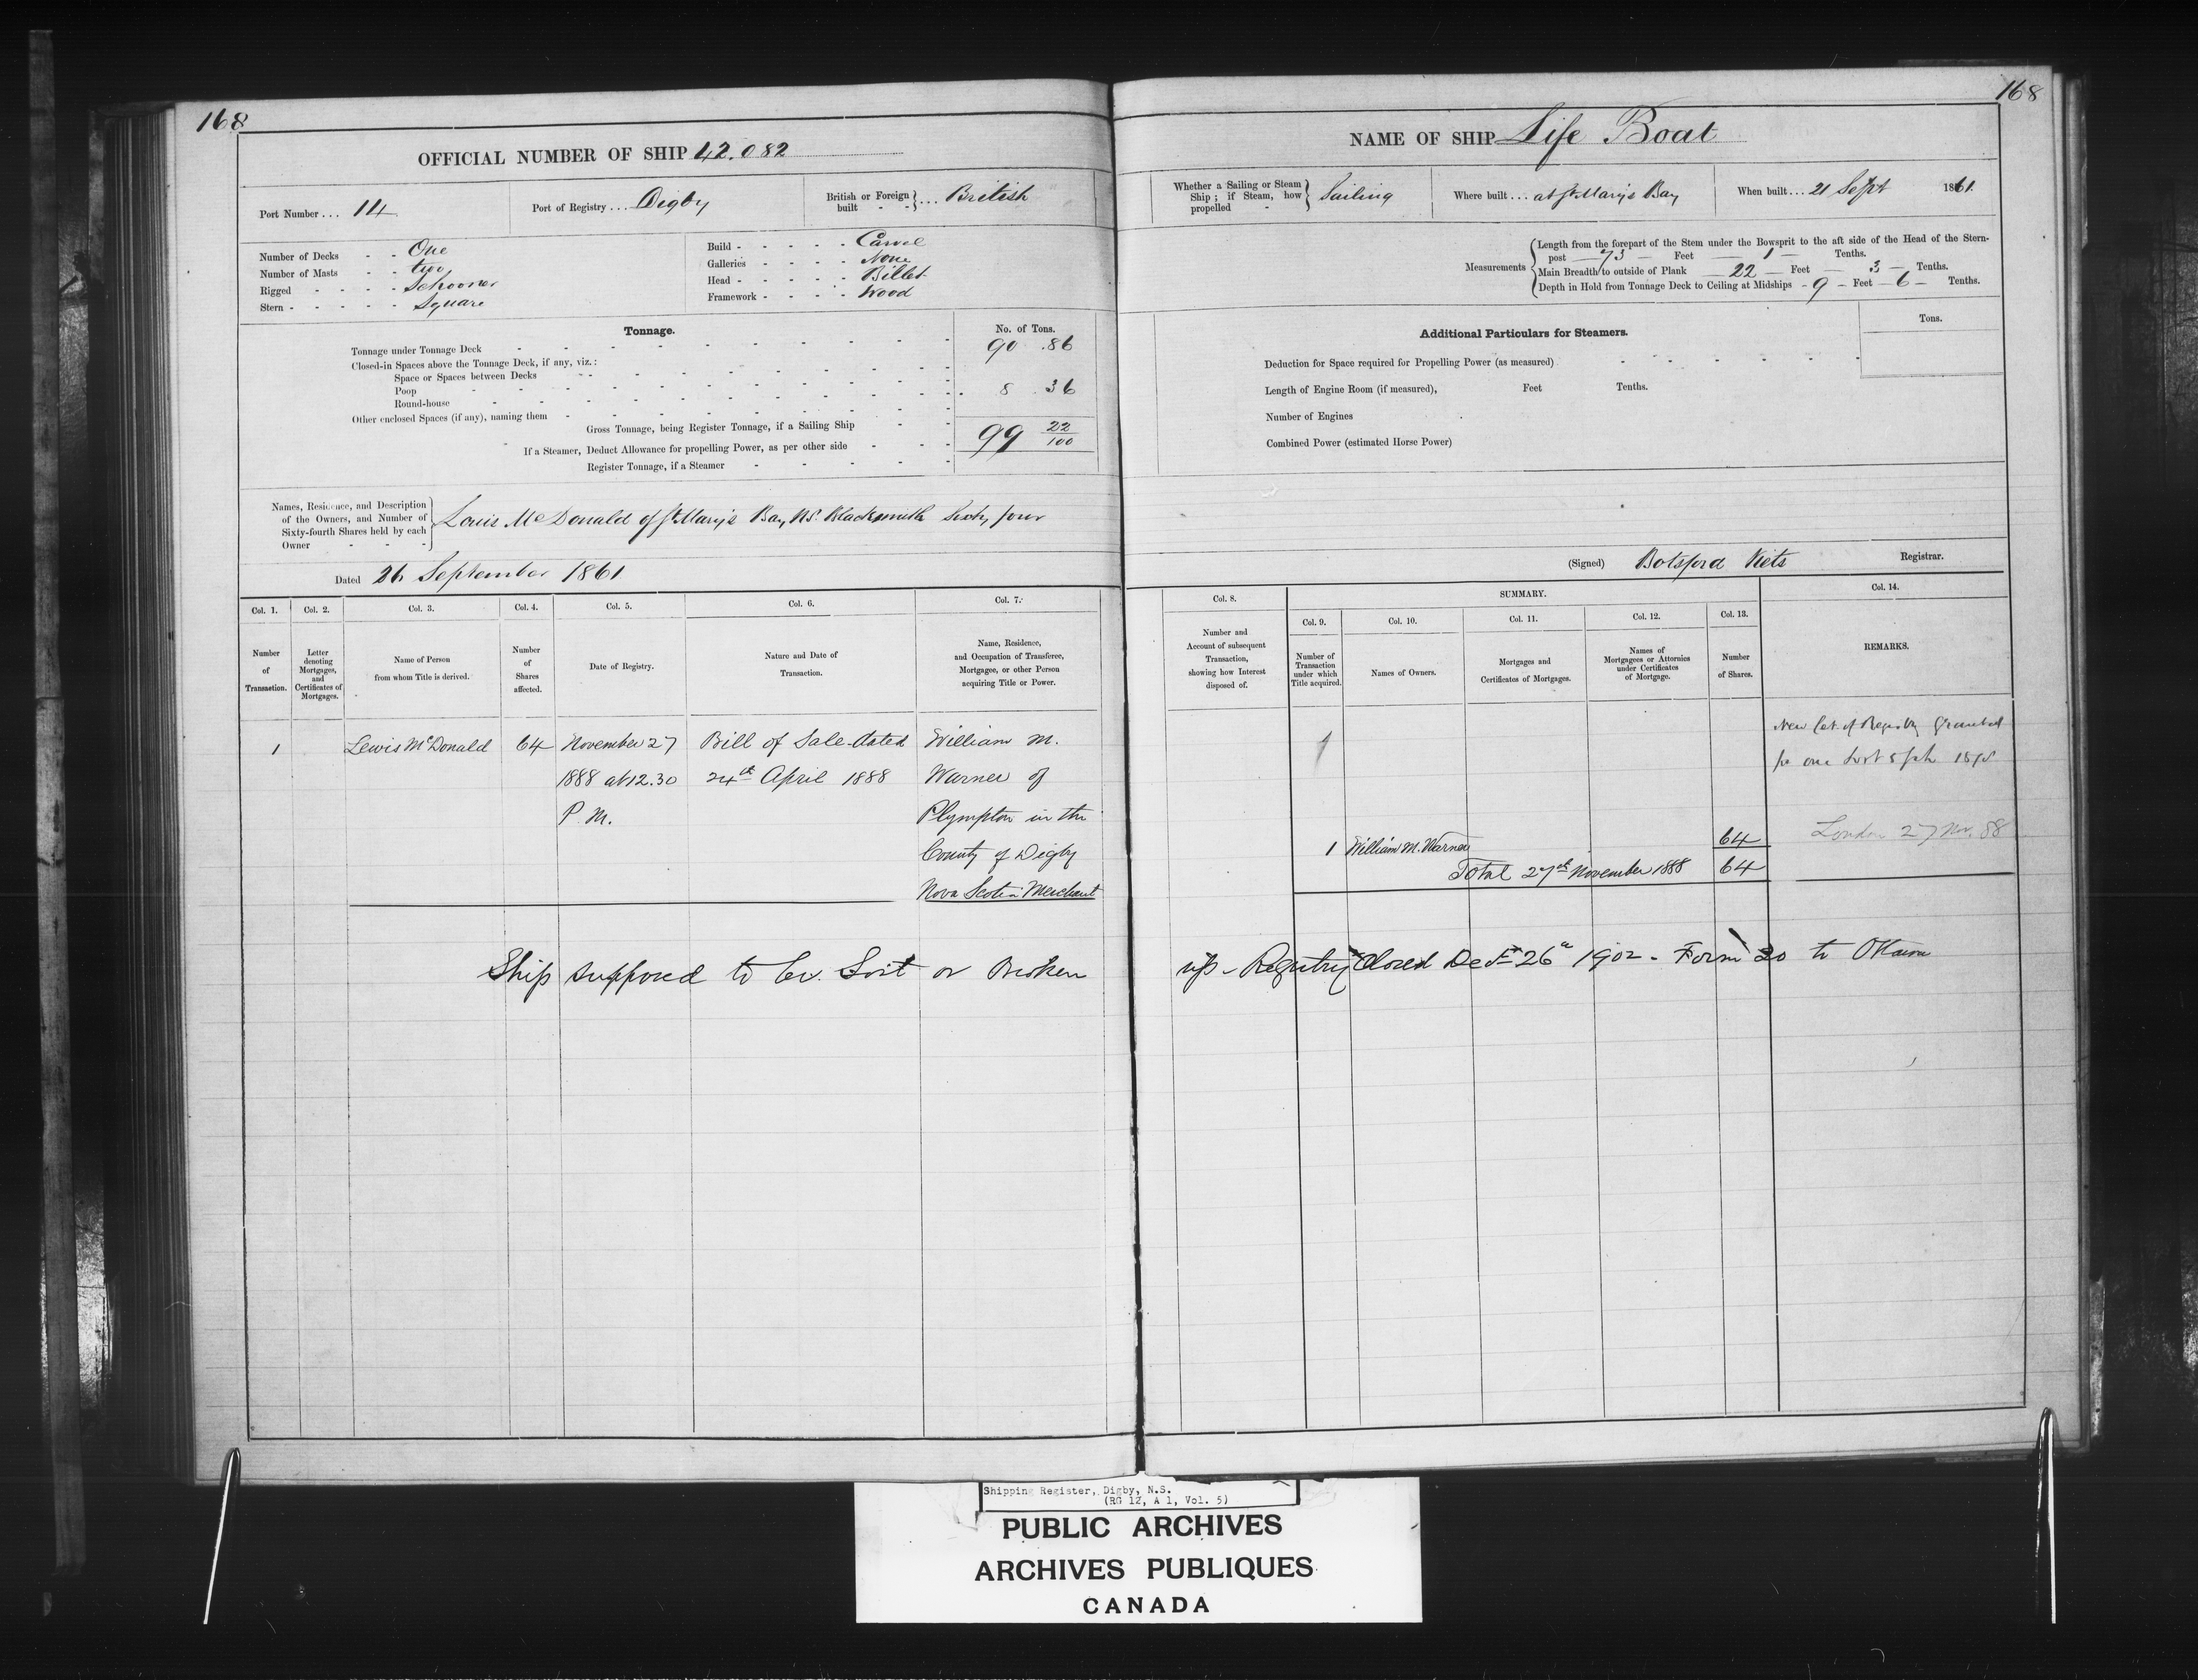 168
OFFICIAL NUMBER OF SHIP 42.082
Port Number ... 14
Port of Registry ... Digby
British or Foreign built ... British
Number of Decks - - One
Number of Masts - - two
Rigged - - - - Schooner
Stern - - - - - Square
Build - - - - - Carvel
Galleries - - - - None
Head - - - - - Billet
Framework - - - - Wood
Tonnage.
No. of Tons.
Tonnage under Tonnage Deck 90 .86
Closed-in Spaces above the Tonnage Deck, if any, viz.:
Space or Spaces between Decks
Poop 8 .36
Round-house
Other enclosed Spaces (if any), naming them
Gross Tonnage, being Register Tonnage, if a Sailing Ship 99 22/100
If a Steamer, Deduct Allowance for propelling Power, as per other side
Register Tonnage, if a Steamer
Names, Residence, and Description of the Owners, and Number of Sixty-fourth Shares held by each Owner
Louis McDonald of St Mary's Bay NS. Blacksmith Sixty four
Dated 26 September 1861
Col. 1. Col. 2. Col. 3. Col. 4. Col. 5. Col. 6. Col. 7.
Number of Transaction.
Letter denoting Mortgages, and Certificates of Mortgages.
Name of Person from whom Title is derived.
Number of Shares affected.
Date of Registry.
Nature and Date of Transaction.
Name, Residence, and Occupation of Transferee, Mortgagee, or other Person acquiring Title or Power.
1 Lewis McDonald 64 November 27 Bill of Sale dated William M.
1888 at 12.30 24th April 1888 Warner of
P.M. Plympton in the
County of Digby
Nova Scotia Merchant
168
NAME OF SHIP Life Boat
Whether a Sailing or Steam Ship; if Steam, how propelled - Sailing
Where built ... at St Mary's Bay
When built ... 21 Sept 1861.
Measurements
Length from the forepart of the Stem under the Bowsprit to the aft side of the Head of the Stern-
post — 73 — Feet — 1 — Tenths.
Main Breadth to outside of Plank — 22 — Feet — 3 — Tenths.
Depth in Hold from Tonnage Deck to Ceiling at Midships - 9 - Feet - 6 - Tenths.
Additional Particulars for Steamers.
Tons.
Deduction for Space required for Propelling Power (as measured)
Length of Engine Room (if measured), Feet Tenths.
Number of Engines
Combined Power (estimated Horse Power)
(Signed) Botsford Viets Registrar.
SUMMARY.
Col. 8. Col. 9. Col. 10. Col. 11. Col. 12. Col. 13. Col. 14.
Number and Account of subsequent Transaction, showing how Interest disposed of.
Number of Transaction under which Title acquired.
Names of Owners.
Mortgages and Certificates of Mortgages.
Names of Mortgagees or Attornies under Certificates of Mortgage.
Number of Shares.
REMARKS.
New Cet. of Registry Granted
for one Lost
London 27 Nov. 88
1 William M. Warner 64
Total 27th November 1888 64
Ship supposed to be Lost or Broken up - Registry Closed Dec 26 1902 - Form 20 to Ottawa
Shipping Register, Digby, N.S.
(RG 12, A 1, Vol. 5)
PUBLIC ARCHIVES
ARCHIVES PUBLIQUES
CANADA